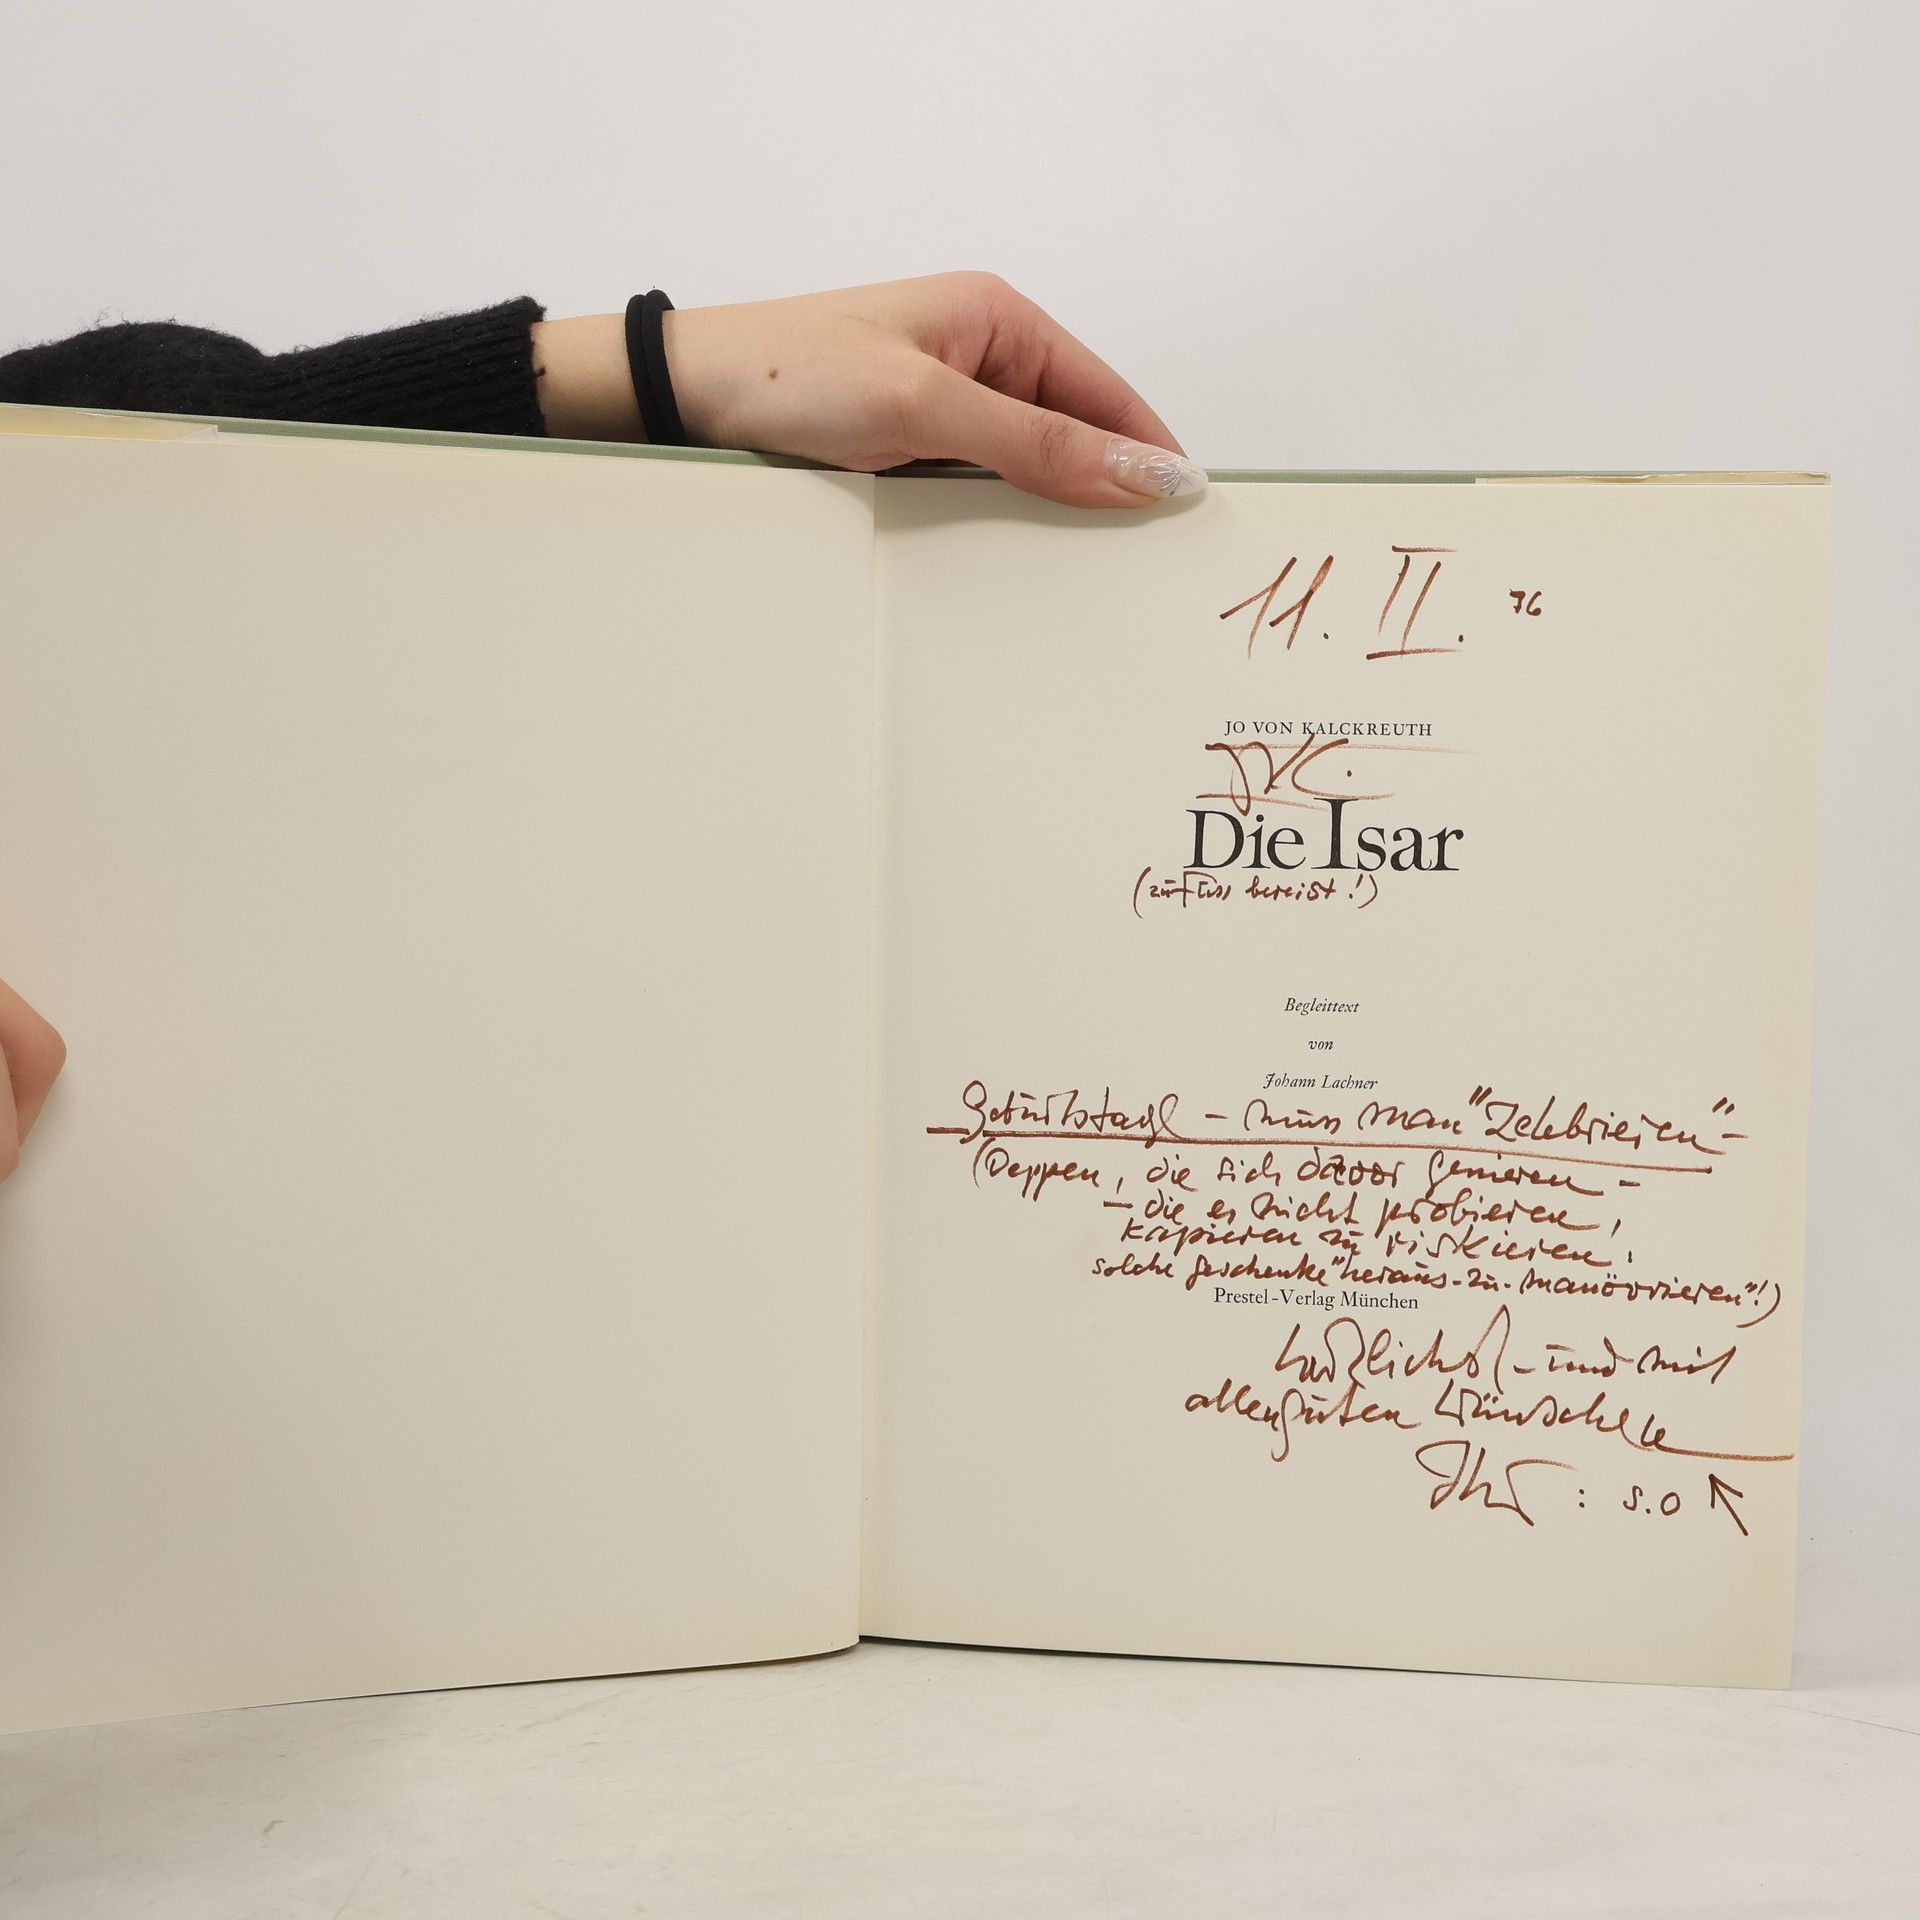 11. II. 76
JO VON KALCKREUTH
JVK.
Die Isar
(zu Fuss bereist!)
Begleittext
von
Johann Lachner
Geburtstagl - muss man "Zelebrieren" -
(Deppen, die sich davor genieren -
- die es nicht probieren,
kapieren zu riskieren:
solche Geschenke "heraus-zu-manövrieren"!)
Prestel-Verlag München
herzlichst - und mit
allen guten Wünschen
Ihr : s.o